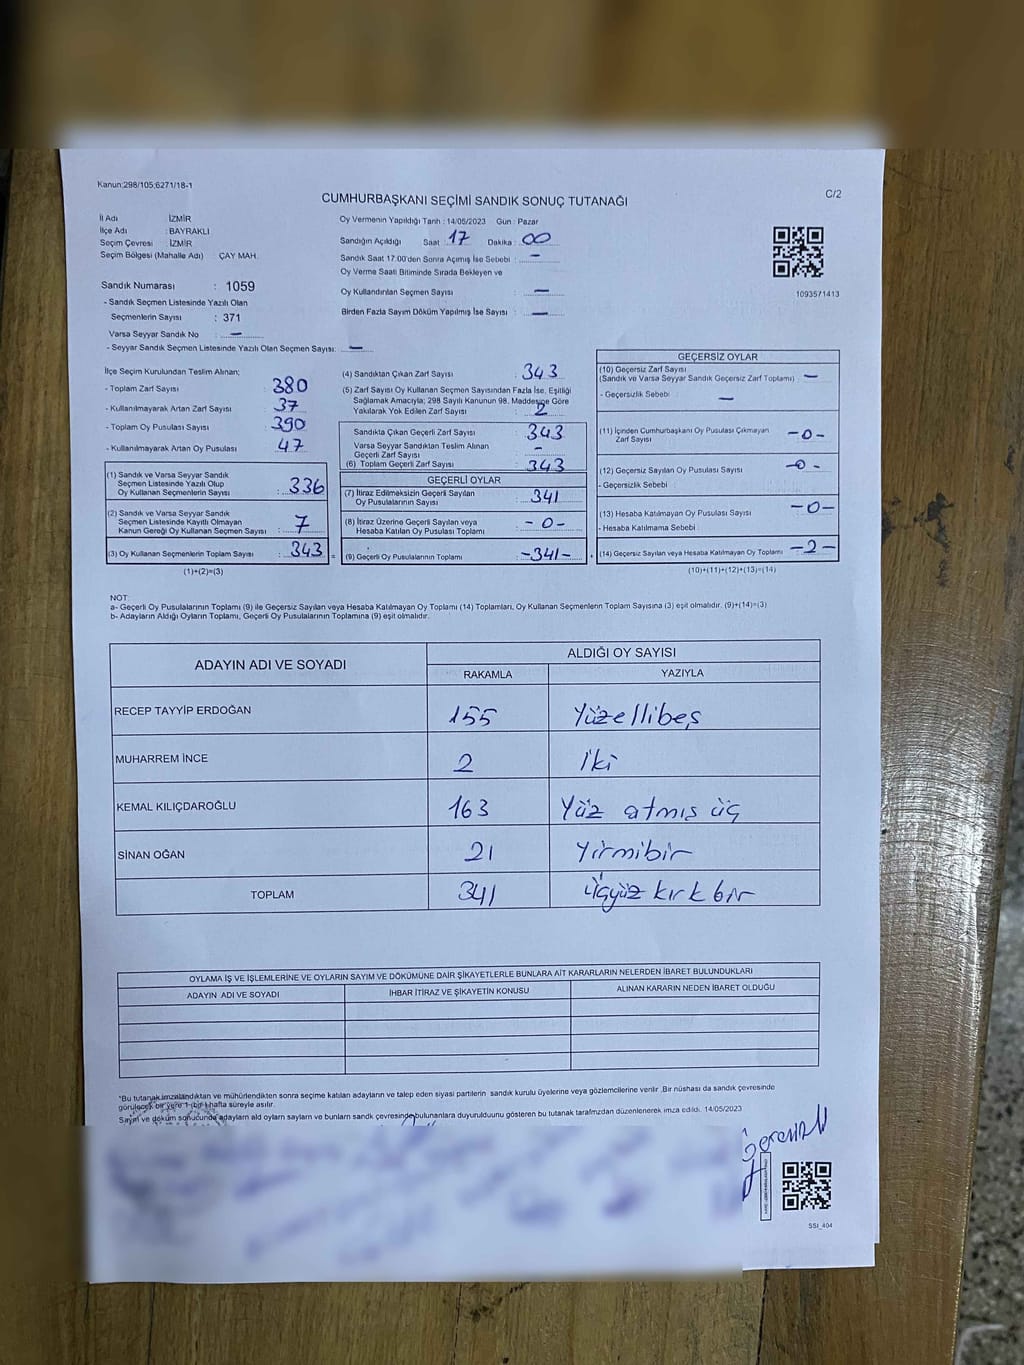 Kanun:298/105;6271/18-1
CUMHURBAŞKANI SEÇİMİ SANDIK SONUÇ TUTANAĞI
C/2
İl Adı İZMİR
İlçe Adı : BAYRAKLI
Seçim Çevresi : İZMİR
Seçim Bölgesi (Mahalle Adı) ÇAY MAH.
Oy Vermenin Yapıldığı Tarih : 14/05/2023 Gün : Pazar
Sandığın Açıldığı Saat 17 Dakika : 00
Sandık Saat 17.00'den Sonra Açımış İse Sebebi : -
Oy Verme Saati Bitiminde Sırada Bekleyen ve
Oy Kullandırılan Seçmen Sayısı : -
Birden Fazla Sayım Döküm Yapılmış İse Sayısı : -
1093571413
Sandık Numarası : 1059
- Sandık Seçmen Listesinde Yazılı Olan
Seçmenlerin Sayısı : 371
Varsa Seyyar Sandık No : -
- Seyyar Sandık Seçmen Listesinde Yazılı Olan Seçmen Sayısı: -
İlçe Seçim Kurulundan Teslim Alınan;
- Toplam Zarf Sayısı : 380
- Kullanılmayarak Artan Zarf Sayısı : 37
- Toplam Oy Pusulası Sayısı : 390
- Kullanılmayarak Artan Oy Pusulası : 47
(1) Sandık ve Varsa Seyyar Sandık
Seçmen Listesinde Yazılı Olup
Oy Kullanan Seçmenlerin Sayısı : 336
(2) Sandık ve Varsa Seyyar Sandık
Seçmen Listesinde Kayıtlı Olmayan
Kanun Gereği Oy Kullanan Seçmen Sayısı : 7
(3) Oy Kullanan Seçmenlerin Toplam Sayısı : 343 =
(1)+(2)=(3)
(4) Sandıktan Çıkan Zarf Sayısı : 343
(5) Zarf Sayısı Oy Kullanan Seçmen Sayısından Fazla İse, Eşitliği
Sağlamak Amacıyla; 298 Sayılı Kanunun 98. Maddesine Göre
Yakılarak Yok Edilen Zarf Sayısı : 2
Sandıkta Çıkan Geçerli Zarf Sayısı : 343
Varsa Seyyar Sandıktan Teslim Alınan
Geçerli Zarf Sayısı : -
(6) Toplam Geçerli Zarf Sayısı : 343
GEÇERLİ OYLAR
(7) İtiraz Edilmeksizin Geçerli Sayılan
Oy Pusulalarının Sayısı : 341
(8) İtiraz Üzerine Geçerli Sayılan veya
Hesaba Katılan Oy Pusulası Toplamı : -0-
(9) Geçerli Oy Pusulalarının Toplamı : -341- +
GEÇERSİZ OYLAR
(10) Geçersiz Zarf Sayısı
(Sandık ve Varsa Seyyar Sandık Geçersiz Zarf Toplamı) : -
- Geçersizlik Sebebi : -
(11) İçinden Cumhurbaşkanı Oy Pusulası Çıkmayan
Zarf Sayısı : -0-
(12) Geçersiz Sayılan Oy Pusulası Sayısı : -0-
- Geçersizlik Sebebi :
(13) Hesaba Katılmayan Oy Pusulası Sayısı : -0-
- Hesaba Katılmama Sebebi :
(14) Geçersiz Sayılan veya Hesaba Katılmayan Oy Toplamı : -2-
(10)+(11)+(12)+(13)=(14)
NOT:
a- Geçerli Oy Pusulalarının Toplamı (9) ile Geçersiz Sayılan veya Hesaba Katılmayan Oy Toplamı (14) Toplamları, Oy Kullanan Seçmenlerin Toplam Sayısına (3) eşit olmalıdır. (9)+(14)=(3)
b- Adayların Aldığı Oyların Toplamı, Geçerli Oy Pusulalarının Toplamına (9) eşit olmalıdır.
ADAYIN ADI VE SOYADI ALDIĞI OY SAYISI
RAKAMLA YAZIYLA
RECEP TAYYİP ERDOĞAN 155 Yüzellibeş
MUHARREM İNCE 2 İki
KEMAL KILIÇDAROĞLU 163 Yüz atmış üç
SİNAN OĞAN 21 Yirmibir
TOPLAM 341 Üçyüz kırk bir
OYLAMA İŞ VE İŞLEMLERİNE VE OYLARIN SAYIM VE DÖKÜMÜNE DAİR ŞİKAYETLERLE BUNLARA AİT KARARLARIN NELERDEN İBARET BULUNDUKLARI
ADAYIN ADI VE SOYADI İHBAR İTİRAZ VE ŞİKAYETİN KONUSU ALINAN KARARIN NEDEN İBARET OLDUĞU
*Bu tutanak imzalandıktan ve mühürlendikten sonra seçime katılan adayların ve talep eden siyasi partilerin sandık kurulu üyelerine veya gözlemcilerine verilir .Bir nüshası da sandık çevresinde
görülecek bir yere 1 (bir) hafta süreyle asılır.
Sayım ve döküm sonucunda adayların aldı oyların sayların ve bunların sandk çevresinde bulunanlara duyurulduunu gösteren bu tutanak tarafmzdan düzenlenerek imza edildi. 14/05/2023
SSI_404